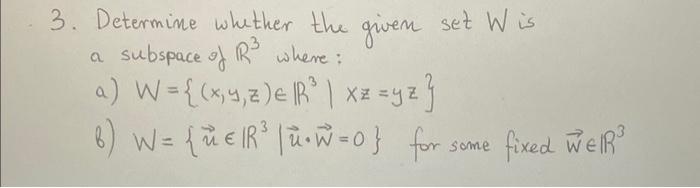 3. Determine whether the given set W is
a subspace of ℝ³ where:
a) W = {(x,y,z) ∈ ℝ³ | xz = yz}
b) W = {u⃗ ∈ ℝ³ | u⃗ · w⃗ = 0} for some fixed w⃗ ∈ ℝ³